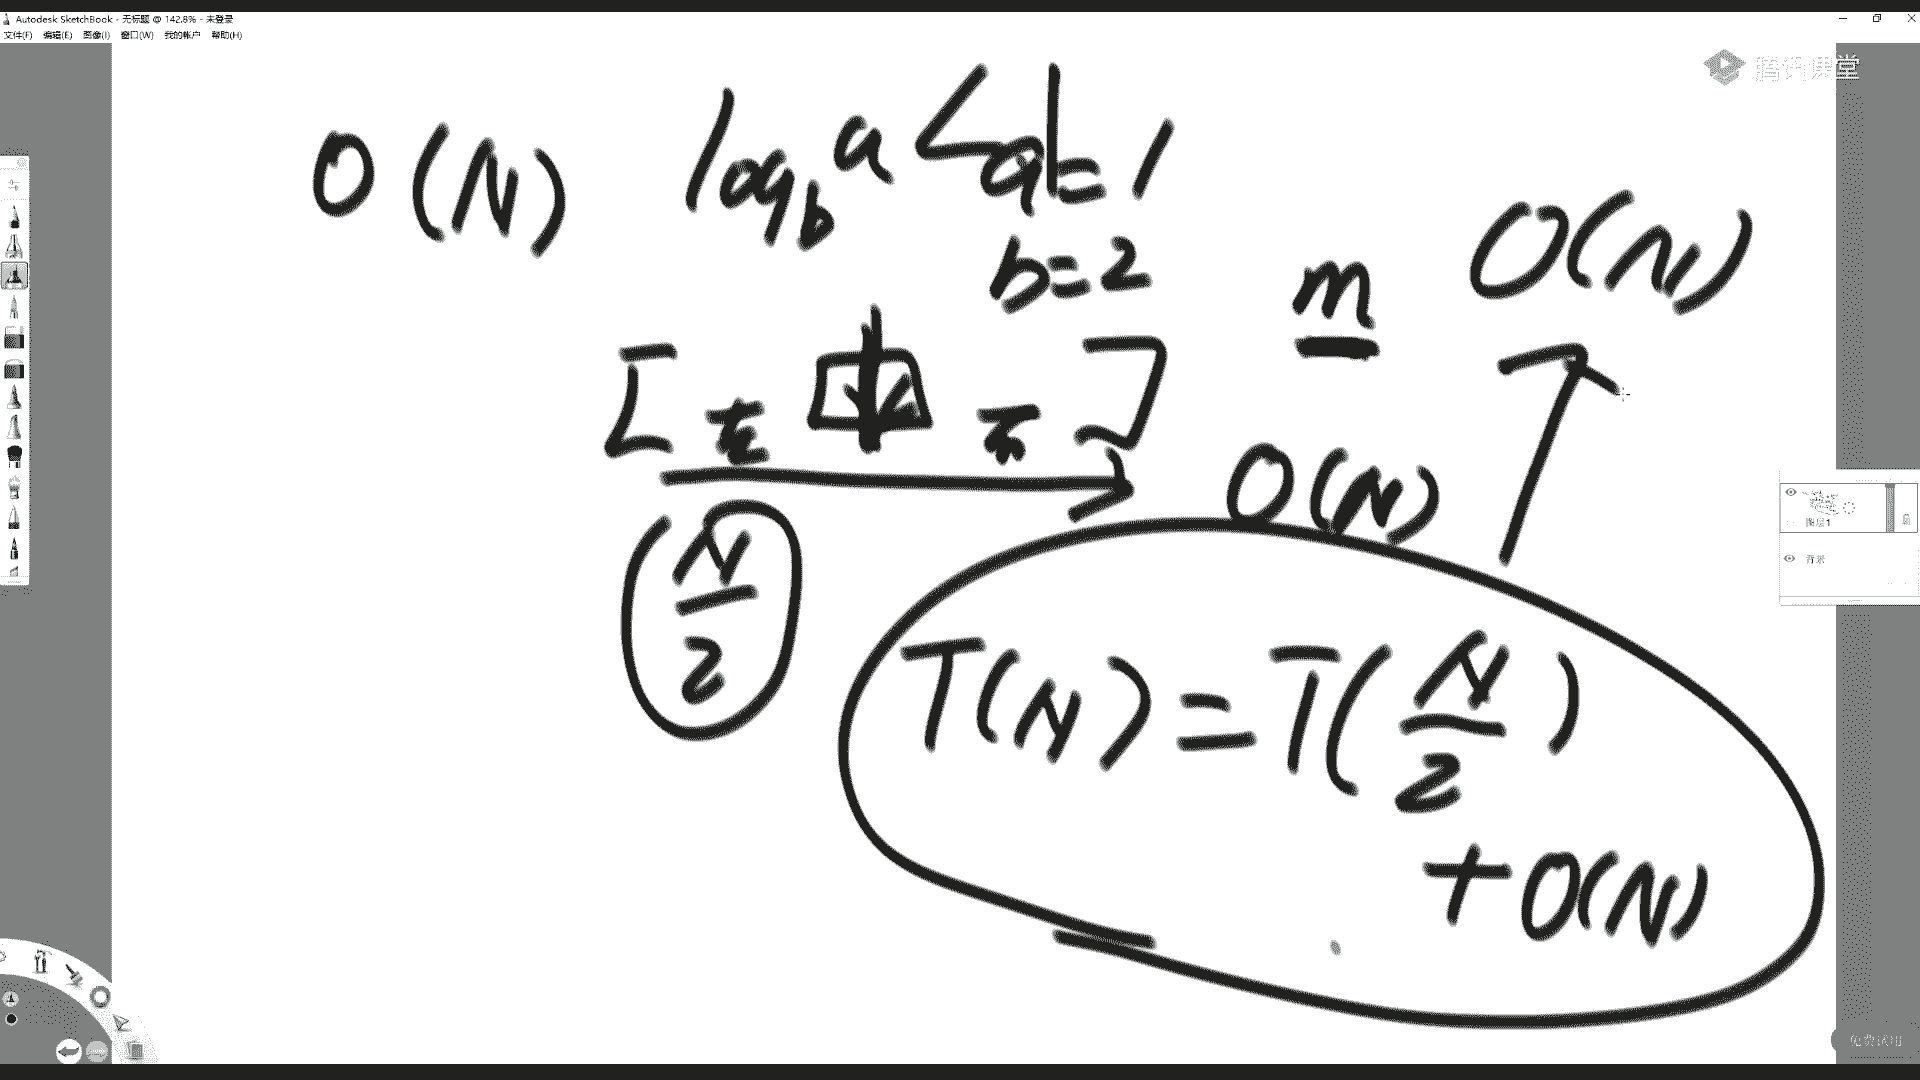 Autodesk SketchBook - 无标题 @ 142.8% - 未登录
文件(F) 编辑(E) 图像(I) 窗口(W) 我的帐户 帮助(H)
腾讯课堂
O(N) log_b a < d
a=1
b=2
m
O(N)
[左 右]
O(N)
N/2
T(N)=T(N/2)
+O(N)
图层1
背景
免费试用